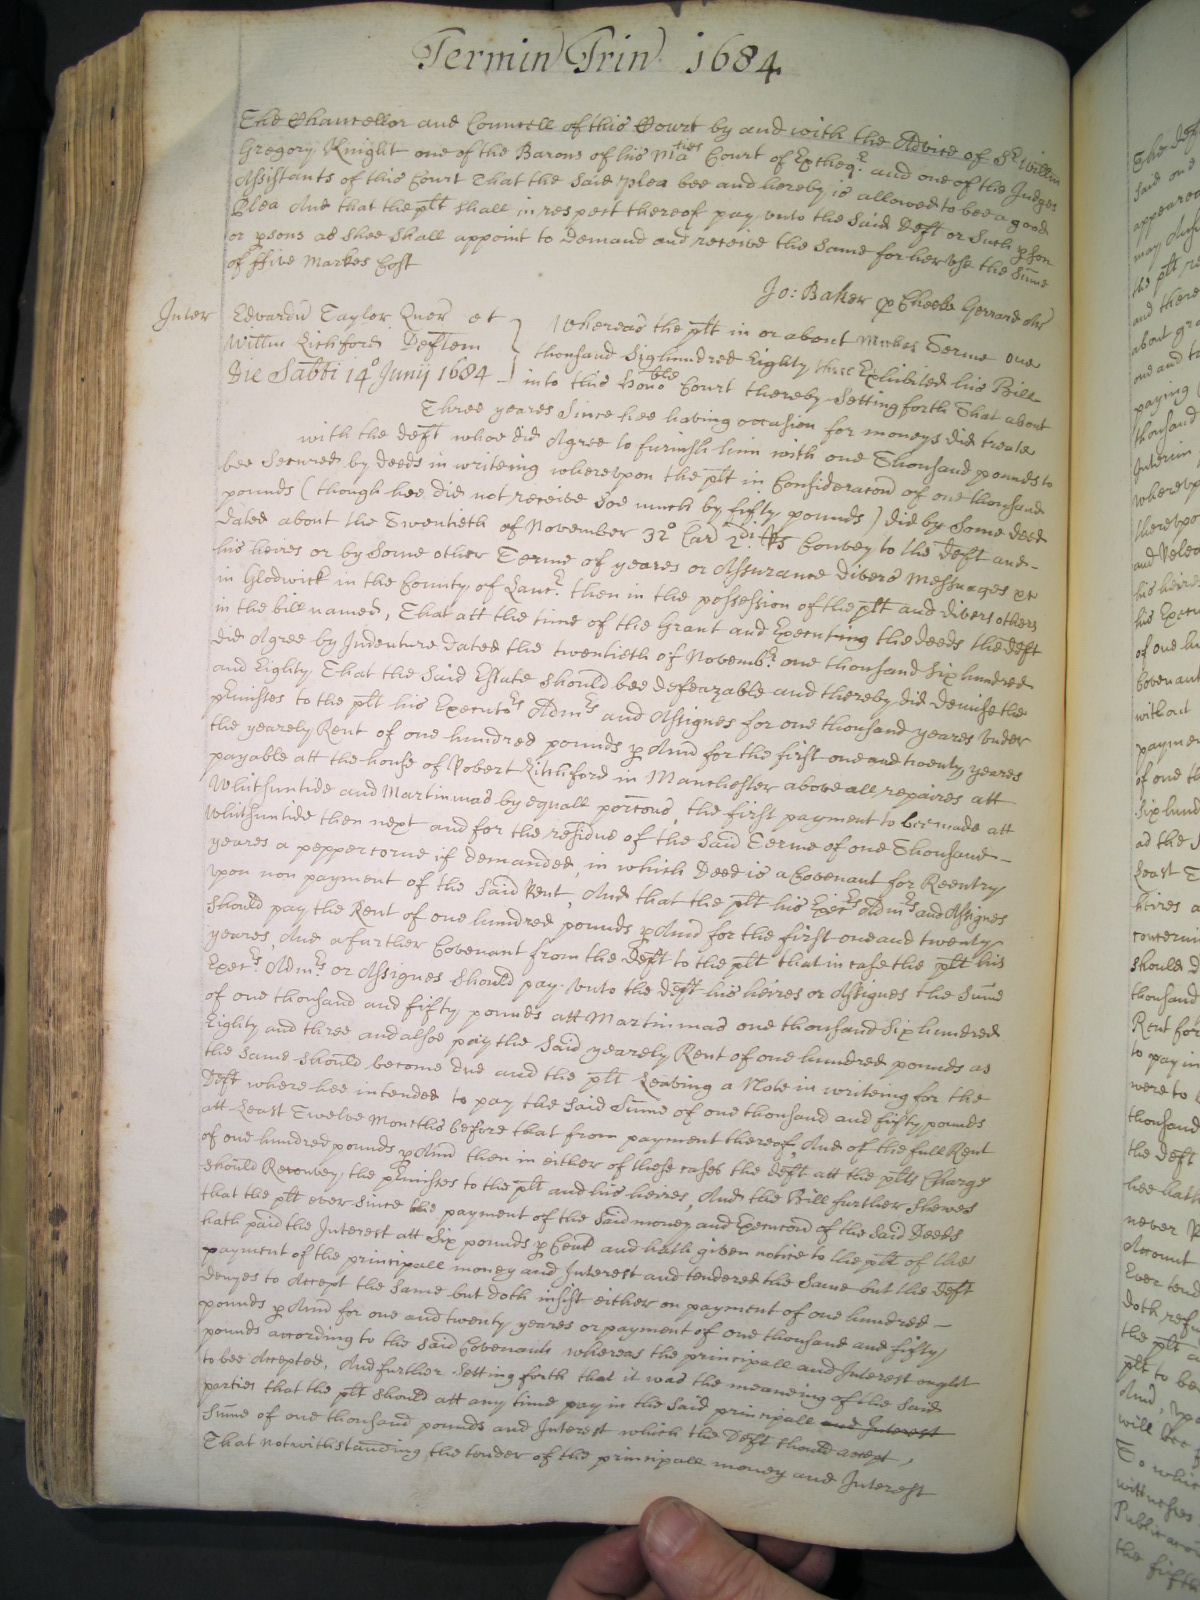 Termin Trin 1684
The Chancellor and Councell of this Court by and with the Advice of Sr. Willm
Gregory Knight one of the Barons of his Maties Court of Excheqr. and one of the Judges
Assistants of this Court That the said plea bee and hereby is allowed to bee a good
Plea And that the plt shall in respect thereof pay unto the said Deft or such pson
or psons as shee shall appoint to demand and receive the same for her use the Sume
of ffive Markes Cost
Jo: Baker p Cheeke Gerrard
Inter Edvardu Taylor Quer et
Willm Lichford Deftem
Die Sabti 14o Junij 1684
Whereas the plt in or about Terme one
thousand Sixhundred Eighty three Exhibited his Bill
into this Honoble Court thereby Setting forth That about
Three yeares Since hee having occasion for moneys did treate
with the deft whoe did Agree to furnish him with one Thousand pounds to
bee Secured by deeds in writeing whereupon the plt in Consideracon of one thousand
pounds (though hee did not receive Soe much by fifty pounds) did by Some deed
dated about the Twentieth of November 32o Car 2di Rs Convey to the deft and
his heires or by Some other Terme of yeares or Assurance divers Messuages &c
in Glodwick in the County of Lancr. then in the possession of the plt and divers others
in the bill named, That att the time of the Grant and Executing the deeds the deft
did Agree by Indenture dated the twentieth of Novembr. one thousand Six hundred
and Eighty That the Said Estate should bee defeazable and thereby did Demise the
pmisses to the plt his Executors Admrs and Assignes for one thousand yeares Under
the yearely Rent of one hundred pounds p Annu for the first one and twenty yeares
payable att the house of Robert Litchford in Manchester above all repaires att
Whitsuntide and Martinmas by equall porcons, the first payment to bee made att
Whitsuntide then next and for the residue of the Said Terme of one Thousand
yeares a peppercorne if demanded, in which Deed is a Covenant for Reentry
upon non payment of the Said Rent, And that the plt his Execrs Admrs and Assignes
Should pay the Rent of one hundred pounds p Annu for the first one and twenty
yeares, And a farther Covenant from the Deft to the plt that in case the plt his
Execrs. Admrs or Assignes should pay unto the deft his heires or Assignes the Sume
of one thousand and fifty pounds att Martinmas one thousand Six hundred
Eighty and three and alsoe pay the Said yearely Rent of one hundred pounds as
the Same should become due and the plt Leaving a Note in writeing for the
Deft where hee intended to pay the Said Sume of one thousand and fifty pounds
att Least Twelve Months before that from payment thereof, And of the full Rent
of one hundred pounds p Annu then in either of those cases the deft att the plts Charge
should Reconvey the pmisses to the plt and his heires, And the Bill further Shewes
that the plt ever since the payment of the Said money and Execucon of the Said Deeds
hath paid the Interest att Six pounds p Cent and hath given notice to the plt of the
payment of the principall money and Interest and tendered the Same but the deft
denyes to Accept the Same but doth insist either on payment of one hundred
pounds p Annu for one and twenty yeares or payment of one thousand and fifty
pounds according to the Said Covenants whereas the principall and Interest ought
to bee Accepted, And further Setting forth that it was the meaneing of the Said
parties that the plt should att any time pay in the Said principall and Interest
Sume of one thousand pounds and Interest which the Deft should accept,
That notwithstanding the tender of the principall money and Interest